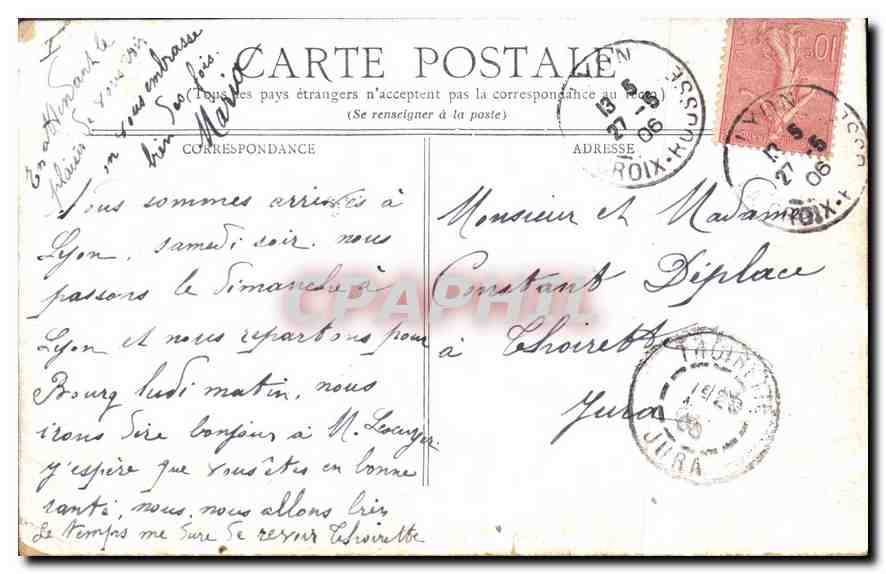 CARTE POSTALE
(Tous les pays étrangers n'acceptent pas la correspondance au recto)
(Se renseigner à la poste)
CORRESPONDANCE
ADRESSE
Nous sommes arrivés à
Lyon, samedi soir. nous
passons le dimanche à
Lyon et nous repartons pour
Bourg lundi matin, nous
irons dire bonjour à M.
j'espère que vous êtes en bonne
santé, nous, nous allons bien
le temps me dure de revoir Thoirette
En attendant le
plaisir de vous voir
on vous embrasse
bien des fois.
Maria
Monsieur et Madame
Constant Déplace
à Thoirette
Jura
LYON
13 5
27 -5
06
CROIX-ROUSSE
LYON
13 5
27 -5
06
CROIX-ROUSSE
10
THOIRETTE
JURA
CPAPHIL